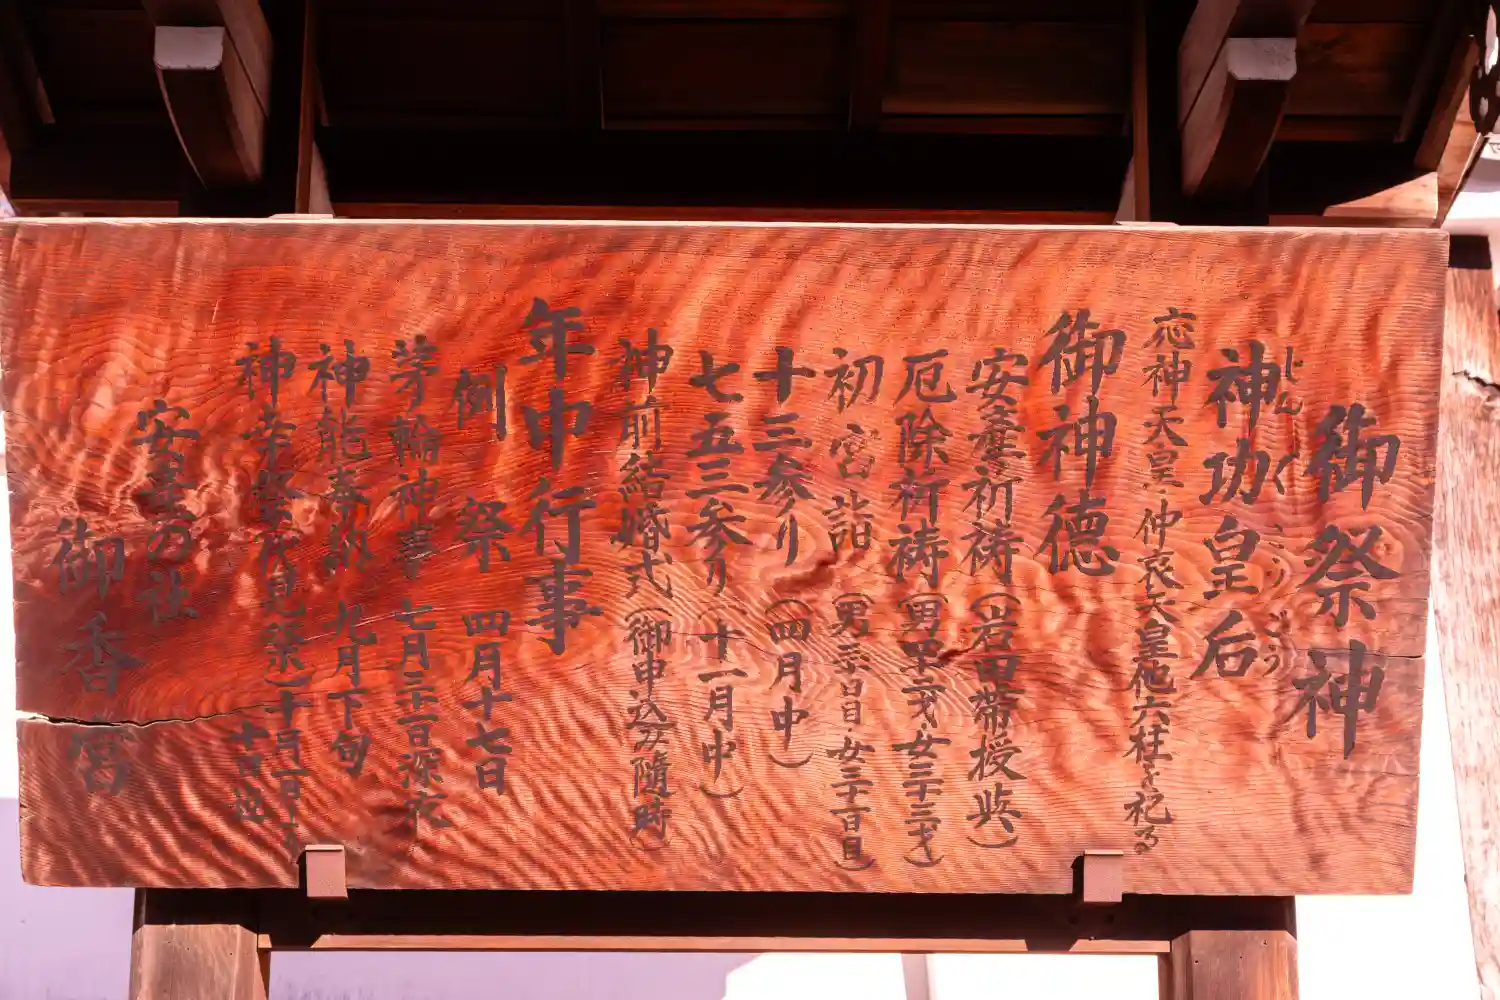 御祭神
神功皇后
じんぐうこうごう
応神天皇・仲哀天皇他六柱を祀る
御神徳
安産祈祷(岩田帯授与)
厄除祈祷(男四十二才・女三十三才)
初宮詣(男三十日目・女三十一日目)
十三参り(四月中)
七五三参り(十一月中)
神前結婚式(御申込み随時)
年中行事
例祭 四月十七日
茅輪神事 七月三十一日深夜
神能奉納 九月下旬
神幸祭(伏見祭)十月一日より
十日迄
安産の社
御香宮